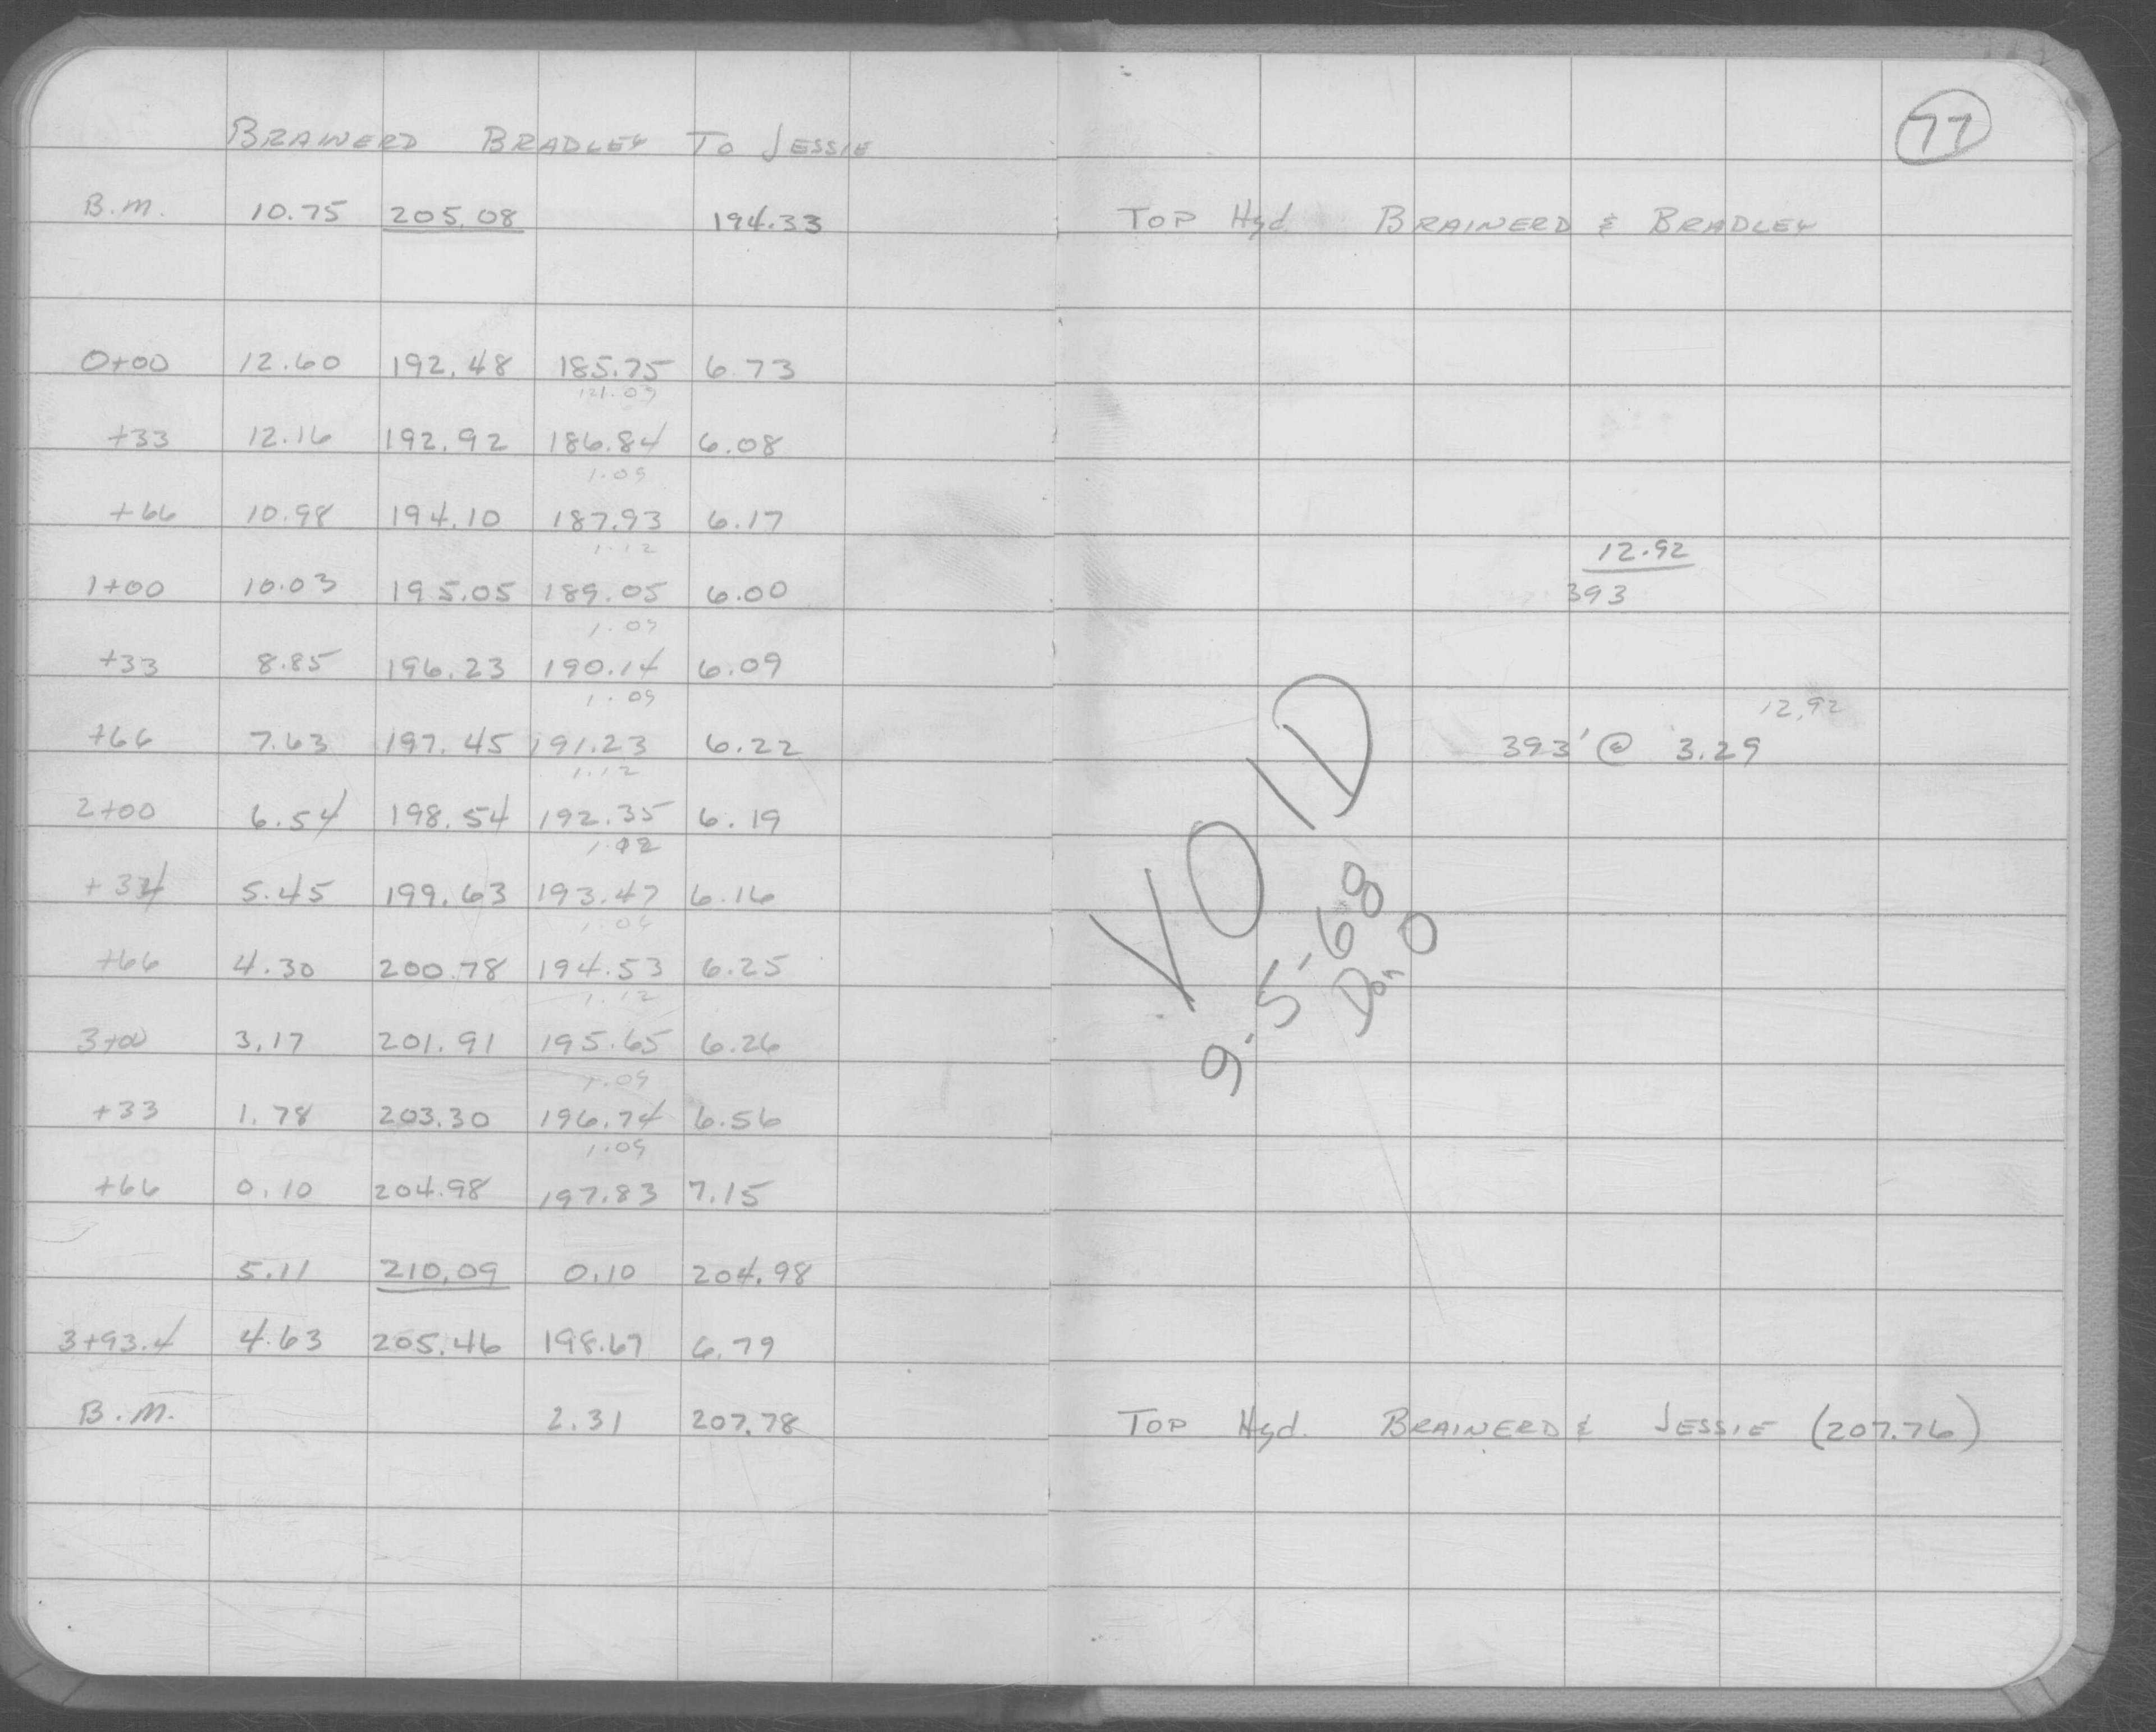 BRAINERD BRADLEY TO JESSIE
B.M. 10.75 205.08 194.33
0+00 12.60 192.48 185.75 6.73
+33 12.16 192.92 186.84 6.08
1.09
+66 10.98 194.10 187.93 6.17
1.12
1+00 10.03 195.05 189.05 6.00
1.09
+33 8.85 196.23 190.14 6.09
1.09
+66 7.63 197.45 191.23 6.22
1.12
2+00 6.54 198.54 192.35 6.19
1.12
+34 5.45 199.63 193.47 6.16
1.06
+66 4.30 200.78 194.53 6.25
1.12
3+00 3.17 201.91 195.65 6.26
1.09
+33 1.78 203.30 196.74 6.56
1.09
+66 0.10 204.98 197.83 7.15
5.11 210.09 0.10 204.98
3+93.4 4.63 205.46 198.67 6.79
B.M. 2.31 207.78
77
TOP Hyd. BRAINERD & BRADLEY
12.92
393
12.92
393' @ 3.29
VOID
9-5-68
Don O
TOP Hyd. BRAINERD & JESSIE (207.76)